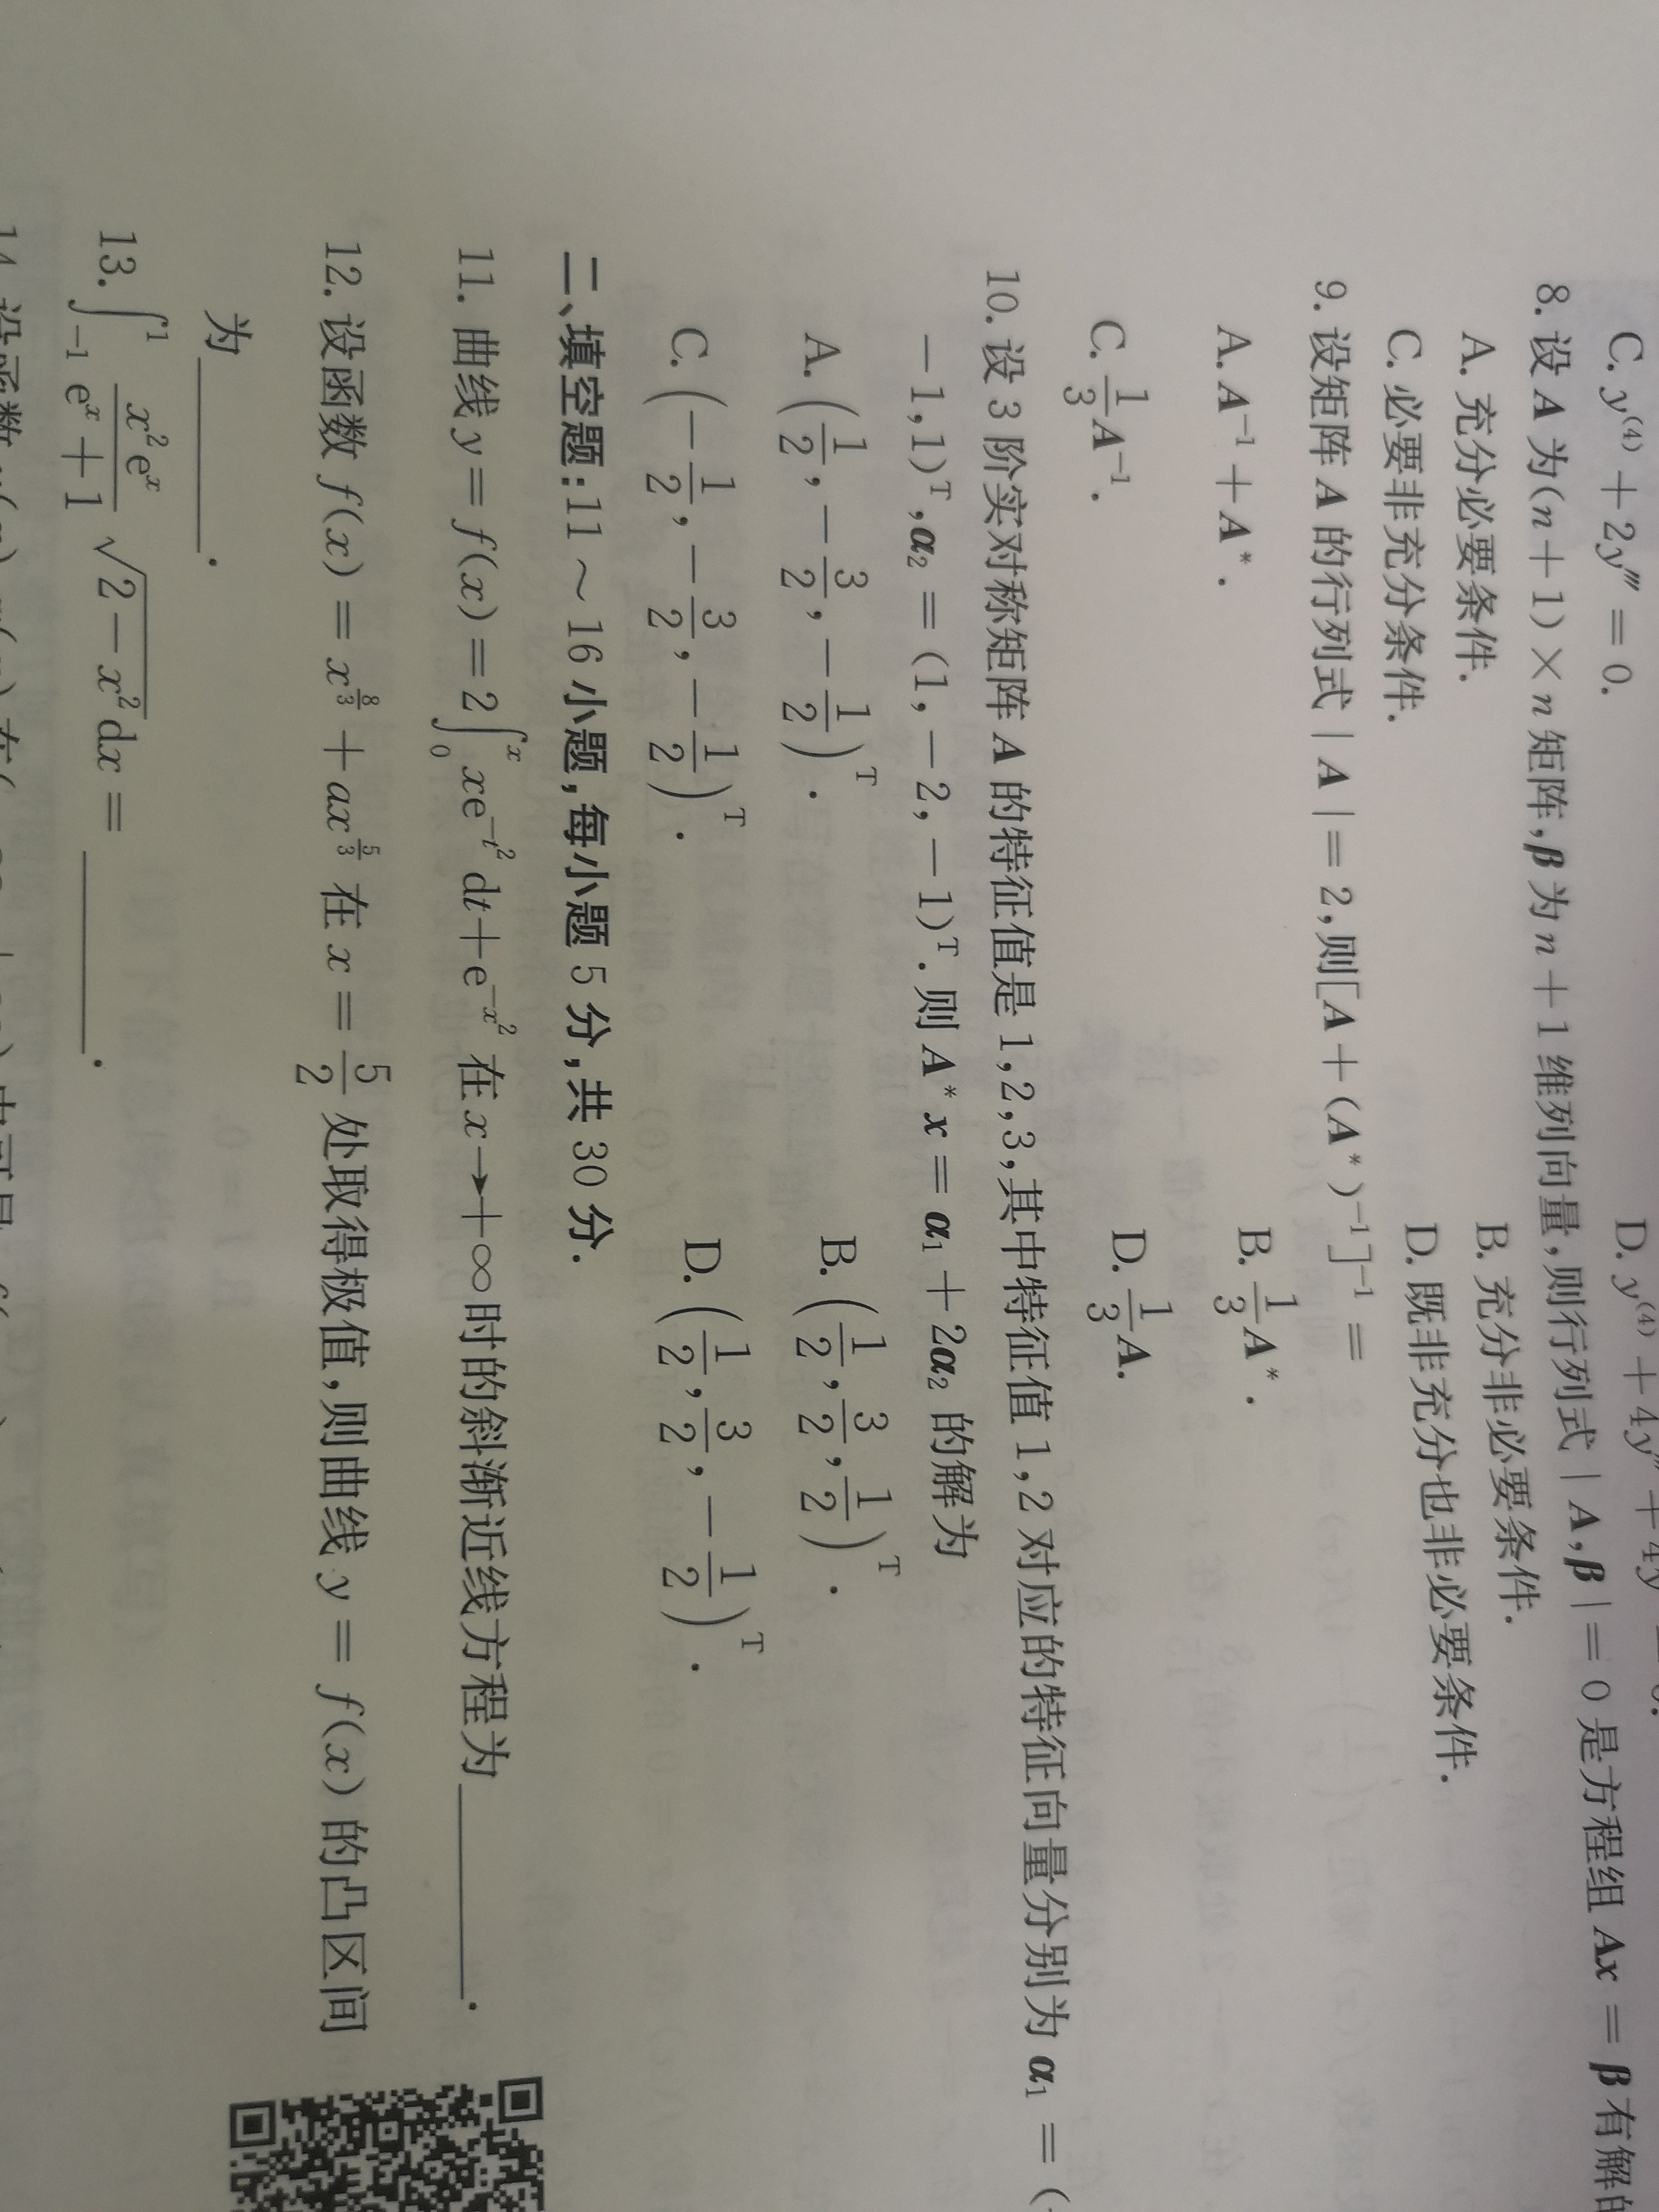 C. y⁽⁴⁾ + 2y''' = 0. D. y⁽⁴⁾ + 4y''' + 4y
8. 设 A 为(n + 1) × n 矩阵,β 为 n + 1 维列向量,则行列式 | A,β | = 0 是方程组 Ax = β 有解的
A. 充分必要条件. B. 充分非必要条件.
C. 必要非充分条件. D. 既非充分也非必要条件.
9. 设矩阵 A 的行列式 | A | = 2,则[A + (A*)⁻¹]⁻¹ =
A. A⁻¹ + A*. B. 1/3 A*.
C. 1/3 A⁻¹. D. 1/3 A.
10. 设 3 阶实对称矩阵 A 的特征值是 1,2,3,其中特征值 1,2 对应的特征向量分别为 α₁ = (
-1,1)ᵀ,α₂ = (1,-2,-1)ᵀ. 则 A*x = α₁ + 2α₂ 的解为
A. (1/2,-3/2,-1/2)ᵀ. B. (1/2,3/2,1/2)ᵀ.
C. (-1/2,-3/2,-1/2)ᵀ. D. (1/2,3/2,-1/2)ᵀ.
二、填空题:11 ~ 16 小题,每小题 5 分,共 30 分.
11. 曲线 y = f(x) = 2∫₀ˣ xe^(-t²) dt + e^(-x²) 在 x→+∞ 时的斜渐近线方程为______.
12. 设函数 f(x) = x^(8/3) + ax^(5/3) 在 x = 5/2 处取得极值,则曲线 y = f(x) 的凸区间
为______.
13. ∫₋₁¹ x²eˣ/(eˣ + 1) √(2 - x²) dx = ______.
14. 设函数